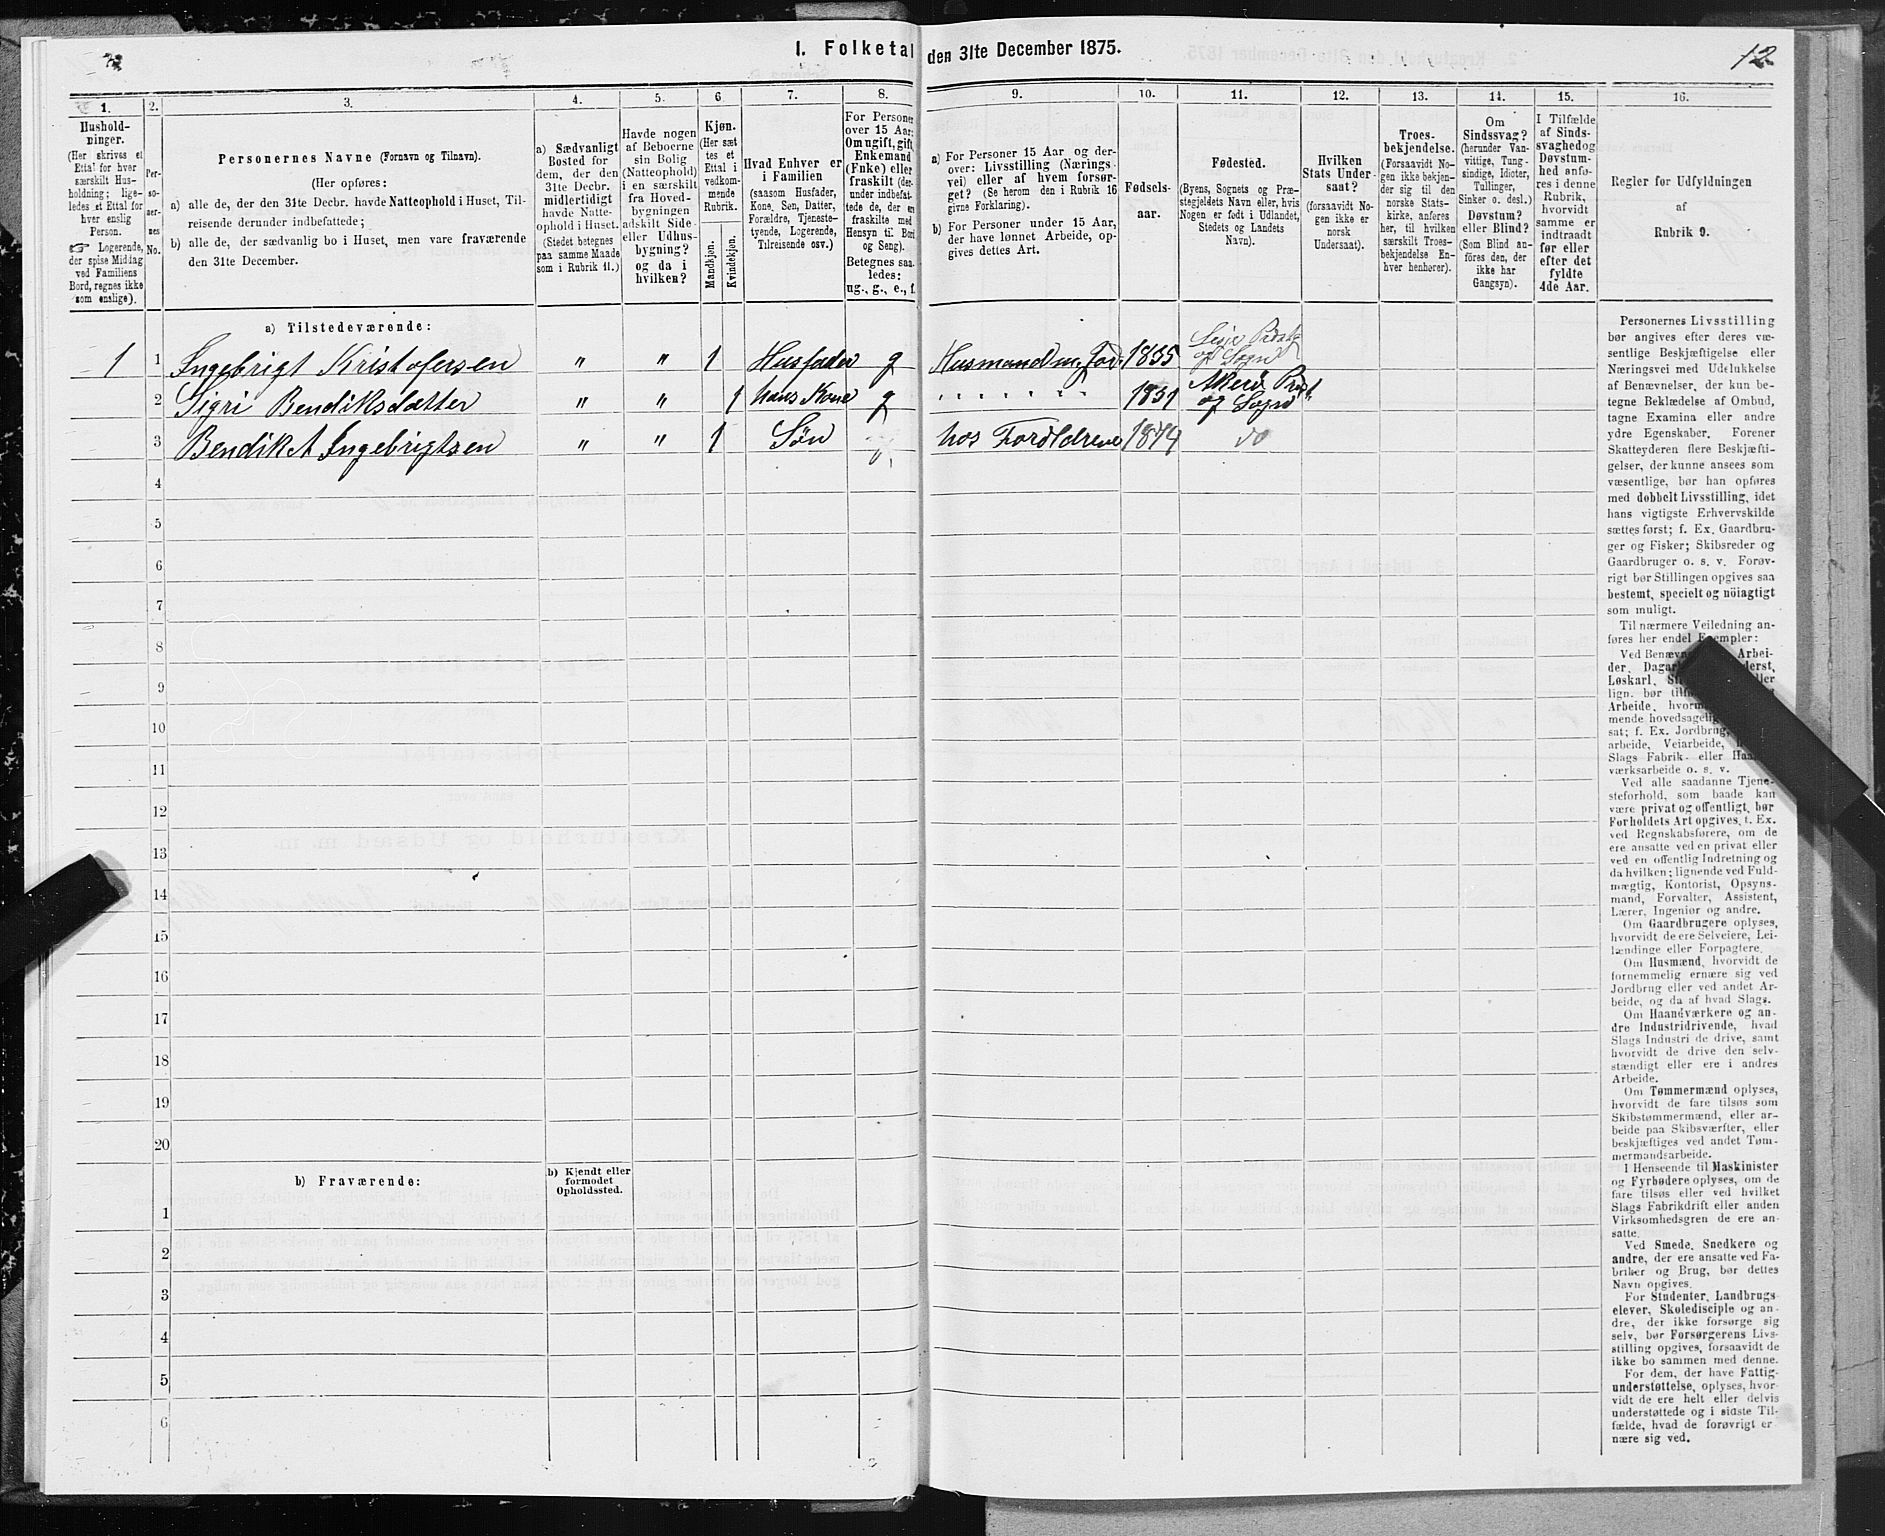 1. Folketal den 31te December 1875.
12
1.
2.
3.
4.
5.
6.
7.
8.
9.
10.
11.
12.
13.
14.
15.
16.
Hushold-
ninger.
(Her skrives et
Ettal for hver
særskilt Hus-
holdning; lige-
ledes et Ettal for
hver enslig
Person.
☞ Logerende,
der spise Middag
ved Familiens
Bord, regnes ikke
som enslige).
Per-
so-
ner-
nes
No.
Personernes Navne (Fornavn og Tilnavn).
(Her opføres:
a) alle de, der den 31te Decbr. havde Natteophold i Huset, Til-
reisende derunder indbefattede;
b) alle de, der sædvanlig bo i Huset, men vare fraværende
den 31te December.
a) Sædvanligt
Bosted for
dem, der den
31te Decbr.
midlertidigt
havde Natte-
ophold i Huset.
(Stedet betegnes
paa samme Maade
som i Rubrik 11.)
Havde nogen
af Beboerne
sin Bolig
(Natteophold)
i en særskilt
fra Hoved-
bygningen
adskilt Side-
eller Udhus-
bygning?
og da i
hvilken?
Kjøn.
(Her sæt
tes et
Ettal i
vedkom-
mende
Rubrik.
Mandkjøn.
Kvindekjøn.
Hvad Enhver er
i Familien
(saasom Husfader,
Kone, Søn, Datter,
Forældre, Tjeneste-
tyende, Logerende,
Tilreisende osv.)
For Personer
over 15 Aar:
Om ugift, gift,
Enkemand
(Enke) eller
fraskilt (der-
under indbefat-
tede de, der ere
fraskilte med
Hensyn til Bord
og Seng).
Betegnes saa-
ledes:
ug., g., e., f.
a) For Personer 15 Aar og der-
over: Livsstilling (Nærings-
vei) eller af hvem forsør-
get? (Se herom den i Rubrik 16
givne Forklaring).
b) For Personer under 15 Aar,
der have lønnet Arbeide, op-
gives dettes Art.
Fødsels-
aar.
Fødested.
(Byens, Sognets og Præ-
stegjeldets Navn eller, hvis
Nogen er født i Udlandet,
Stedets og Landets
Navn).
Hvilken
Stats Under-
saat?
(forsaavidt No-
gen ikke er
norsk
Undersaat).
Troes-
bekjendelse.
(Forsaavidt No-
gen ikke bekjen-
der sig til den
norske Stats-
kirke, anføres
her, til hvilken
særskilt Troes-
bekjendelse En-
hver henhører).
Om
Sindssvag?
(herunder Van-
vittige, Tung-
sindige, Idioter,
Tullinger,
Sinker o. desl.)
Døvstum?
eller Blind?
(Som Blind an-
føres den, der
ikke har
Gangsyn).
I Tilfælde
af Sinds-
svaghed og
Døvstum-
hed anfø-
res i denne
Rubrik,
hvorvidt
samme er
indtraadt
før eller
efter det
fyldte
4de Aar.
Regler for Udfyldningen
af
Rubrik 9.
a) Tilstedeværende:
1 1 Ingebrigt Kristofersen " " 1 Husfader g Husmand m. Jord 1835 Præst og Sogn
2 Sigri Bendiksdatter " " 1 hans Kone g " " " " " " 1831 Akerø Præst. og Sogn
3 Bendiket Ingebrigtsen " " 1 Søn hos Forældrene 1874 do
4
5
6
7
8
9
10
11
12
13
14
15
16
17
18
19
20
b) Fraværende:
b) Kjendt eller
formodet
Opholdssted.
1
2
3
4
5
6
Personernes Livsstilling
bør angives efter deres væ-
sentlige Beskjæftigelse eller
Næringsvei med Udelukkelse
af Benævnelser, der kun be-
tegne Beklædelse af Ombud,
tagne Examina eller andre
ydre Egenskaber. Forener
Skatteyderen flere Beskjæfti-
gelser, der kunne ansees som
væsentlige, bør han opføres
med dobbelt Livsstilling, idet
hans vigtigste Erhvervskilde
sættes først; f. Ex. Gaardbru-
ger og Fisker; Skibsreder og
Gaardbruger o. s. v. Forøv-
rigt bør Stillingen opgives saa
bestemt, specielt og nöiagtigt
som muligt.
Til nærmere Veiledning an-
føres her endel Exempler:
Ved Benævn Arbei-
der, Dagar derst,
Løskarl, St ller
lign. bør tilf
Arbeide, hvor
mende hovedsagelig
sat; f. Ex. Jordbrug,
arbeide, Veiarbeide,
Slags Fabrik- eller Haand-
værksarbeide o. s. v.
Ved alle saadanne Tjene-
steforhold, som baade kan
være privat og offentligt, bør
Forholdets Art opgives, f. Ex.
ved Regnskabsførere, om de
ere ansatte ved en privat eller
ved en offentlig Indretning og
da hvilken; lignende ved Fuld-
mægtig, Kontorist, Opsyns-
mand, Forvalter, Assistent,
Lærer, Ingeniør og andre.
Om Gaardbrugere oplyses,
hvorvidt de ere Selveiere, Lei-
lændinge eller Forpagtere.
Om Husmænd, hvorvidt de
fornemmelig ernære sig ved
Jordbrug eller ved andet Ar-
beide, og da af hvad Slags.
Om Haandværkere og an-
dre Industridrivende, hvad
Slags Industri de drive, samt
hvorvidt de drive den selv-
stændigt eller ere i andres
Arbeide.
Om Tømmermænd oplyses,
hvorvidt de fare tilsøs som
Skibstømmermænd, eller ar-
beide paa Skibsværfter, eller
beskjæftiges ved andet Tøm-
mermandsarbeide.
I Henseende til Maskinister
og Fyrbødere oplyses, om de
fare tilsøs eller ved hvilket
Slags Fabrikdrift eller anden
Virksomhedsgren de ere an-
satte.
Ved Smede, Snedkere og
andre, der ere ansatte ved Fa-
briker og Brug, bør dettes
Navn opgives.
For Studenter, Landbrugs-
elever, Skoledisciple og an-
dre, der ikke forsørge sig
selv, bør Forsørgerens Livs-
stilling opgives, forsaavidt de
ikke bo sammen med denne.
For dem, der have Fattig-
understøttelse, oplyses, hvor-
vidt de ere helt eller delvis
understøttede og i sidste Til-
fælde, hvad de forøvrigt er-
nære sig ved.